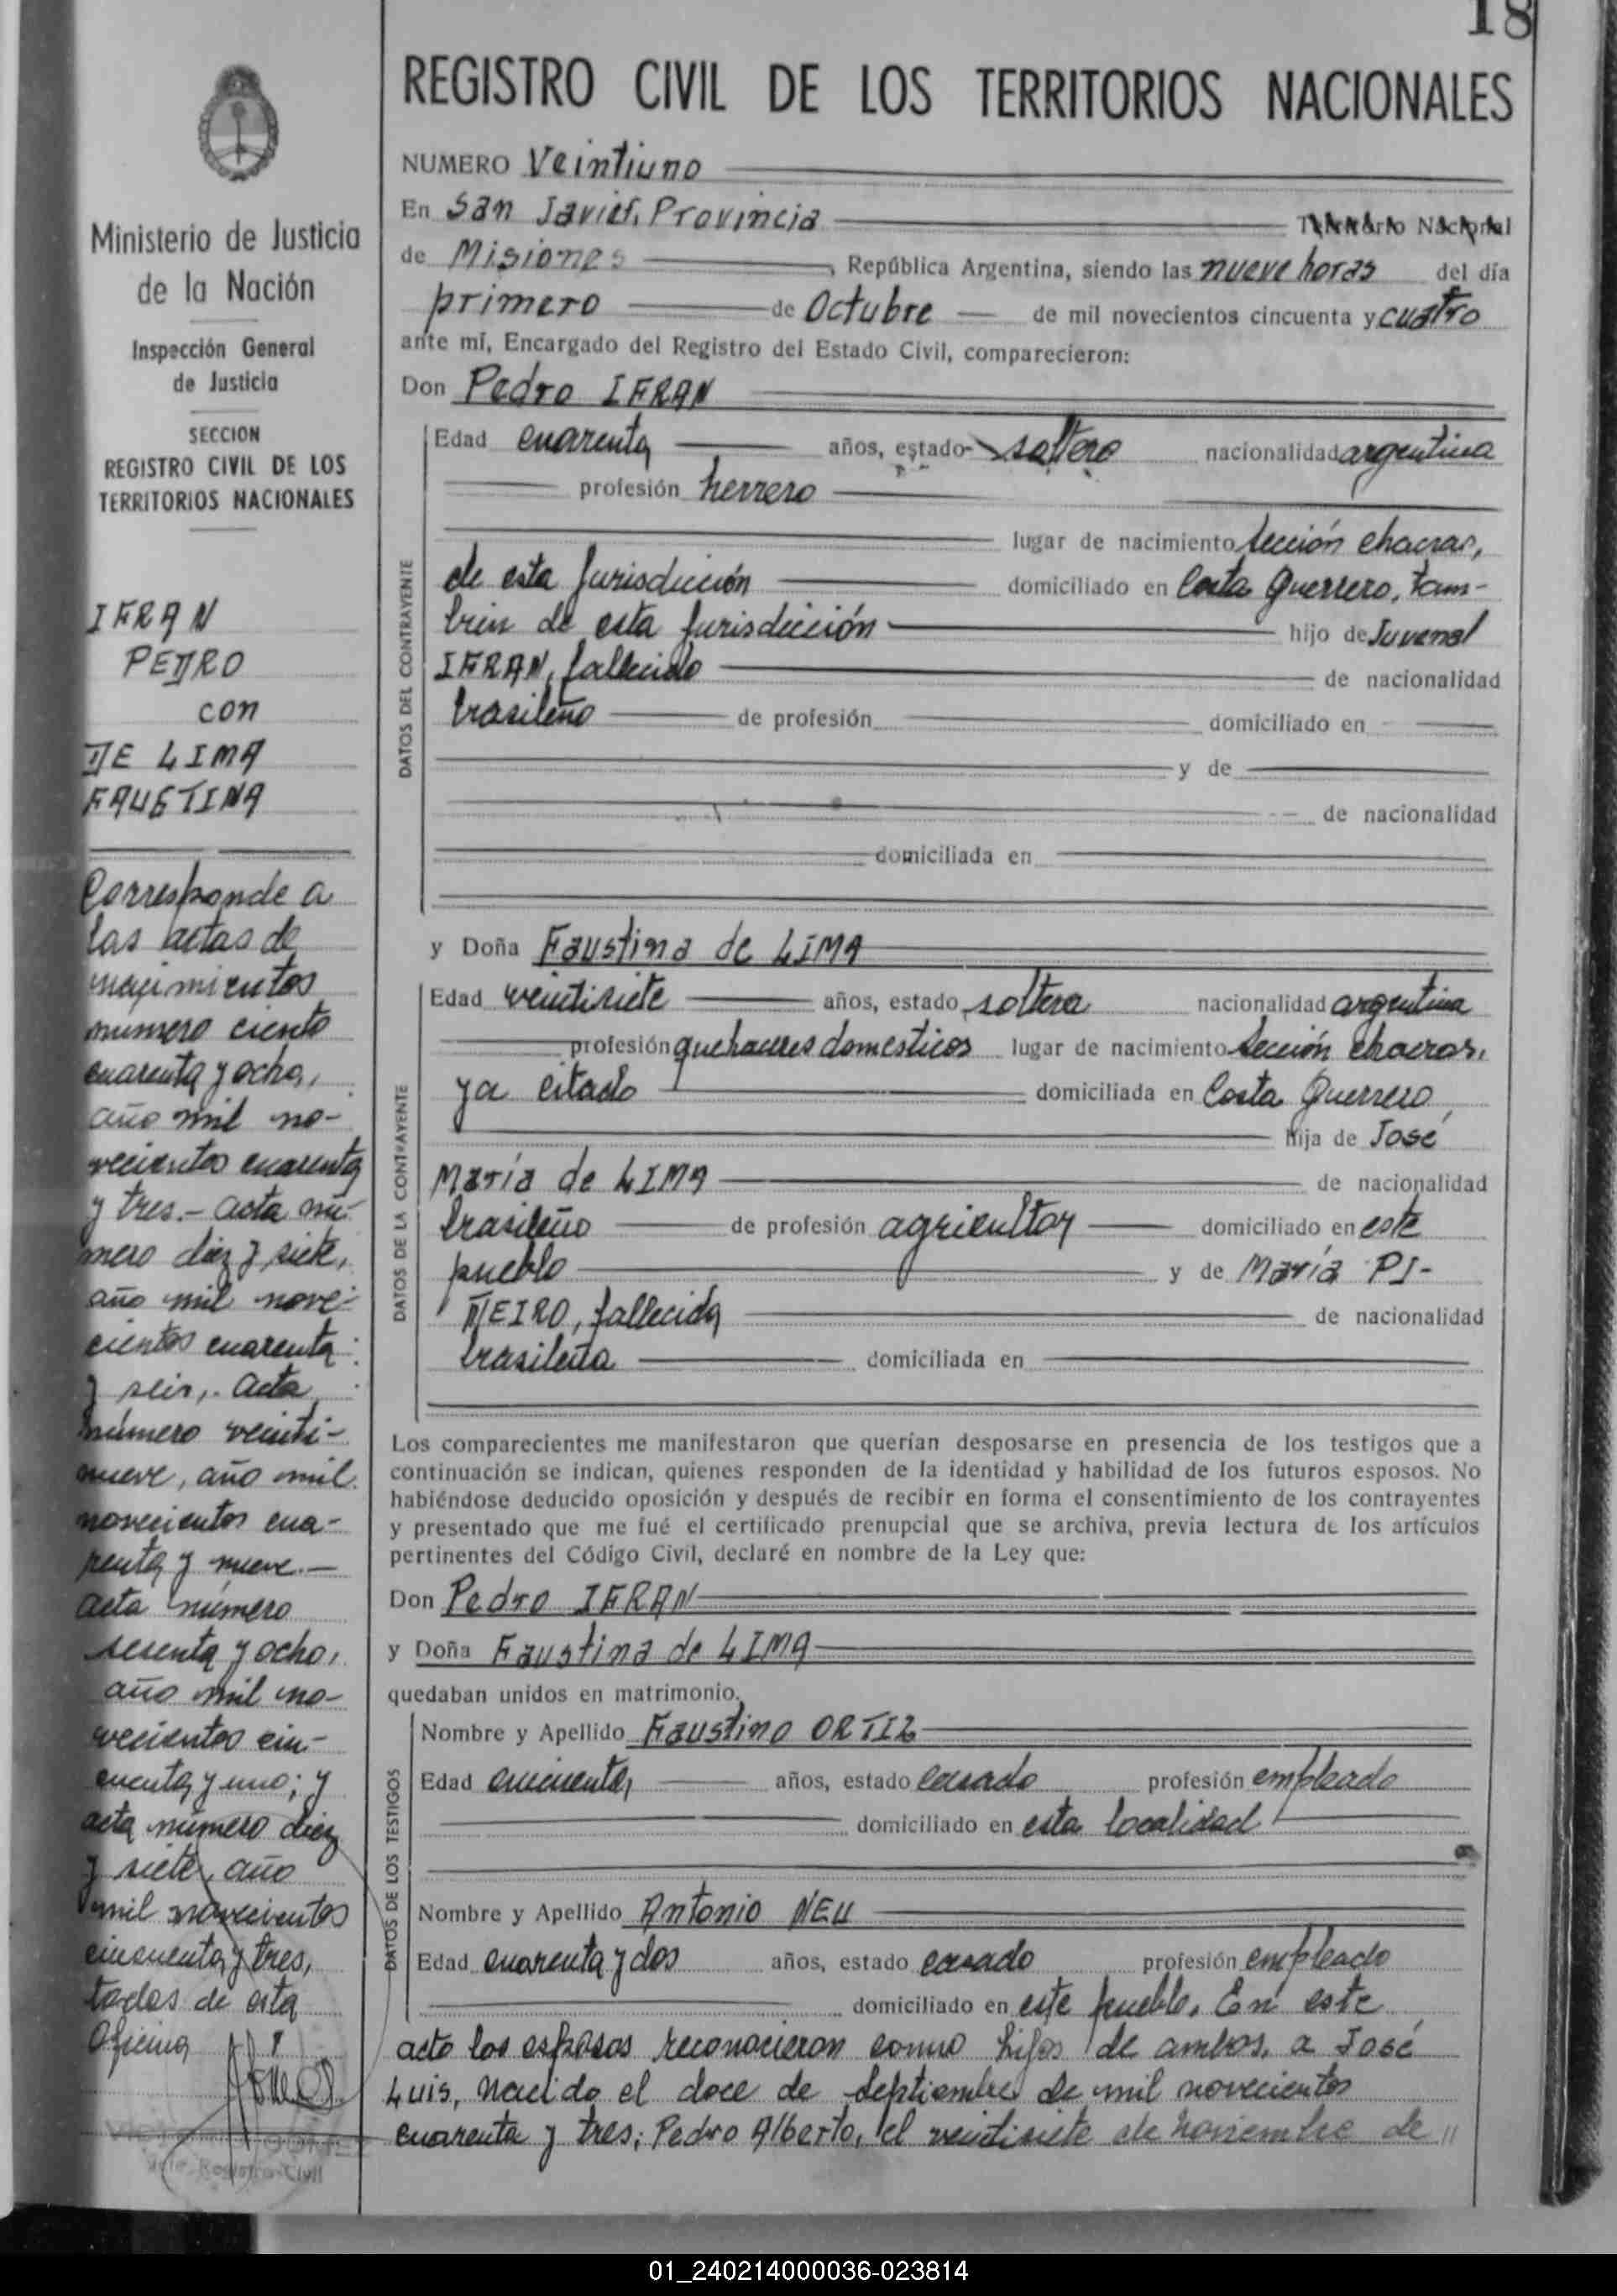 18
REGISTRO CIVIL DE LOS TERRITORIOS NACIONALES
NUMERO Veintiuno
En San Javier, Provincia Territorio Nacional
de Misiones, República Argentina, siendo las nueve horas del día
primero de Octubre de mil novecientos cincuenta y cuatro
ante mí, Encargado del Registro del Estado Civil, comparecieron:
Don Pedro IFRAN
DATOS DEL CONTRAYENTE
Edad cuarenta años, estado soltero nacionalidad argentina
profesión herrero
lugar de nacimiento Sección chacras,
de esta Jurisdicción domiciliado en Costa Guerrero, tam-
bien de esta jurisdicción hijo de Juvenal
IFRAN, fallecido de nacionalidad
brasileño de profesión domiciliado en
y de
de nacionalidad
domiciliada en
y Doña Faustina de LIMA
DATOS DE LA CONTRAYENTE
Edad veintisiete años, estado soltera nacionalidad argentina
profesión quehaceres domesticos lugar de nacimiento Sección chacras,
ya citado domiciliada en Costa Guerrero,
hija de José
María de LIMA de nacionalidad
brasileño de profesión agricultor domiciliado en este
pueblo y de María PI-
ÑEIRO, fallecida de nacionalidad
brasileña domiciliada en
Los comparecientes me manifestaron que querían desposarse en presencia de los testigos que a
continuación se indican, quienes responden de la identidad y habilidad de los futuros esposos. No
habiéndose deducido oposición y después de recibir en forma el consentimiento de los contrayentes
y presentado que me fué el certificado prenupcial que se archiva, previa lectura de los artículos
pertinentes del Código Civil, declaré en nombre de la Ley que:
Don Pedro IFRAN
y Doña Faustina de LIMA
quedaban unidos en matrimonio.
DATOS DE LOS TESTIGOS
Nombre y Apellido Faustino ORTIZ
Edad cincuenta años, estado casado profesión empleado
domiciliado en esta localidad
Nombre y Apellido Antonio NEU
Edad cuarenta y dos años, estado casado profesión empleado
domiciliado en este pueblo. En este
acto los esposos reconocieron como hijos de ambos, a José
Luis, nacido el doce de Septiembre de mil novecientos
cuarenta y tres; Pedro Alberto, el veintisiete de noviembre de //
Ministerio de Justicia
de la Nación
Inspección General
de Justicia
SECCION
REGISTRO CIVIL DE LOS
TERRITORIOS NACIONALES
IFRAN
PEDRO
con
DE LIMA
FAUSTINA
Corresponde a
las actas de
nacimientos
número ciento
cuarenta y ocho,
año mil no-
vecientos cuarenta
y tres.- acta nú-
mero diez y siete,
año mil nove-
cientos cuarenta
y seis,. Acta
número veinti-
nueve, año mil
novecientos cua-
renta y nueve.-
Acta número
sesenta y ocho,
año mil no-
vecientos cin-
cuenta y uno; y
acta número diez
y siete, año
mil novecientos
cincuenta y tres,
todas de esta
Oficina
Registro Civil
01_240214000036-023814